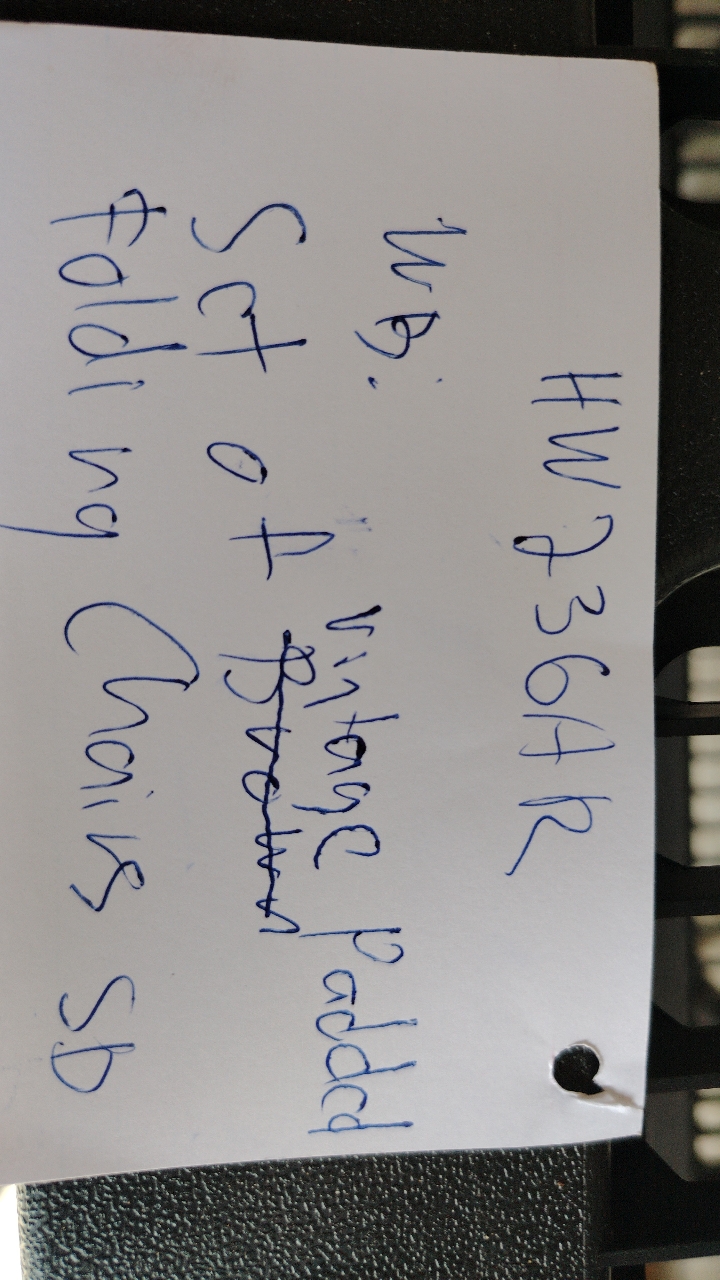 HW236AR
WB:
vintage Padded
Set of Brown
Folding Chairs SD